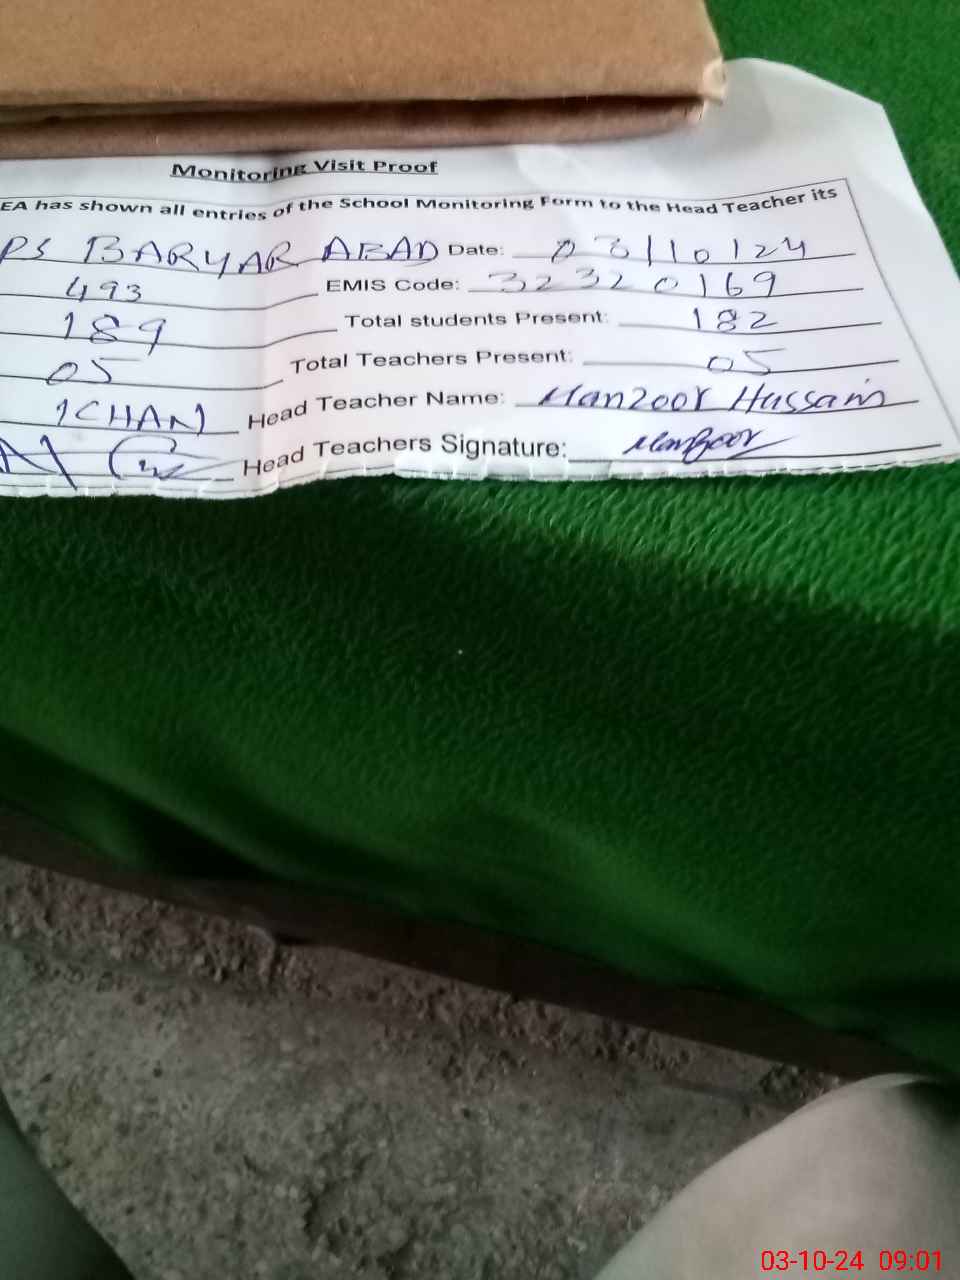 Monitoring Visit Proof
EA has shown all entries of the School Monitoring Form to the Head Teacher its
PS BARYAR ABAD Date: 03/10/24
493 EMIS Code: 32320169
189 Total students Present: 182
05 Total Teachers Present: 05
ICHAN Head Teacher Name: Manzoor Hussain
Head Teachers Signature: Manzoor
03-10-24 09:01